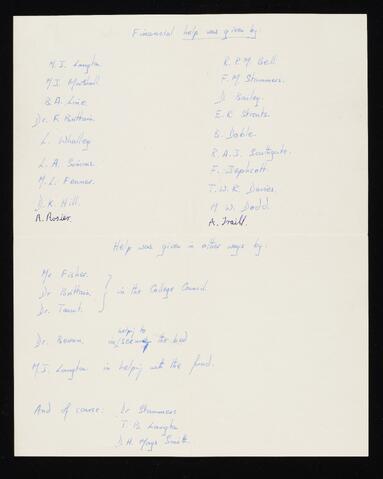 Financial help was given by:
M. J. Langton
M. J. Marshall
B. A. Line
Dr. F. Brittain
L. Whalley
L. A. Simons
M. L. Fenner
D. K. Hill
A. Rosier
R. P. M. Bell
F. M. Stammers
D. Bailey
E. R. Straits
B. Doble
R. A. J. Southgate
F. Jephcott
T. W. R. Davies
M. W. Dodd
A. Traill
Help was given in other ways by:
Mr Fisher
Dr Brittain
Dr. Taunt
in the College Council
Dr. Bevan in helping to the bed
M. J. Langton in helping with the fund.
And of course: Dr Stammers
T. B. Langton
D. H. Mays Smith